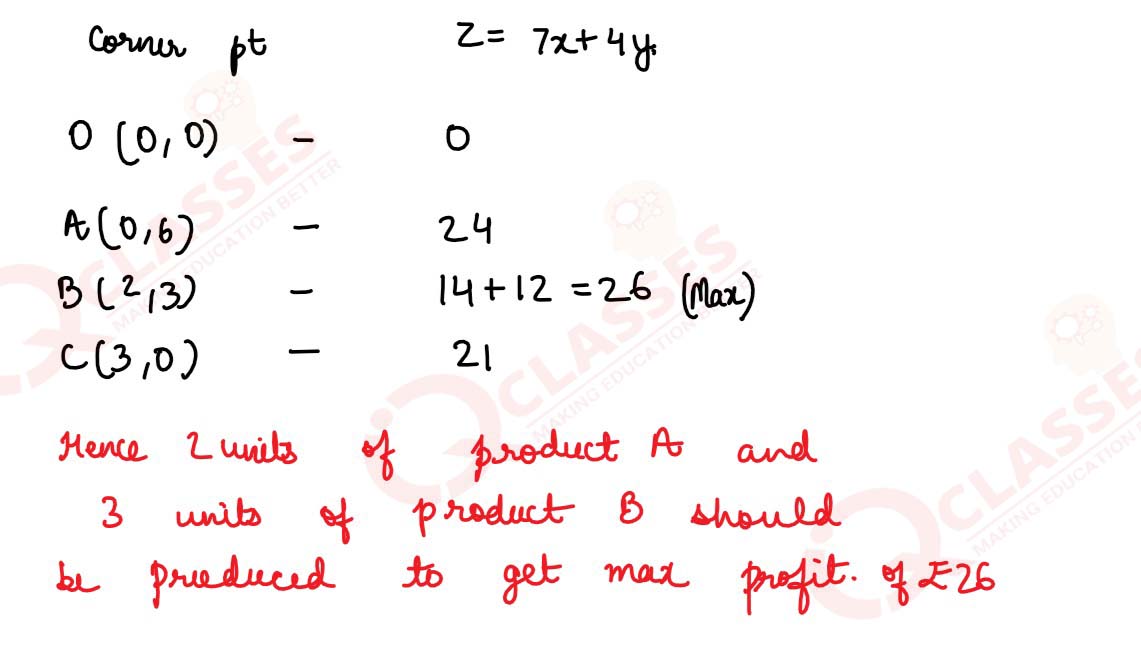 Corner pt Z= 7x+4y.
O (0,0) - 0
A(0,6) - 24
B(2,3) - 14+12 =26 (Max)
C(3,0) - 21
Hence 2 units of product A and
3 units of product B should
be prueduced to get max profit. of ₤26
CLASSES
MAKING EDUCATION BETTER
CLASSES
MAKING EDUCATION BETTER
CLASSES
MAKING EDUCATION